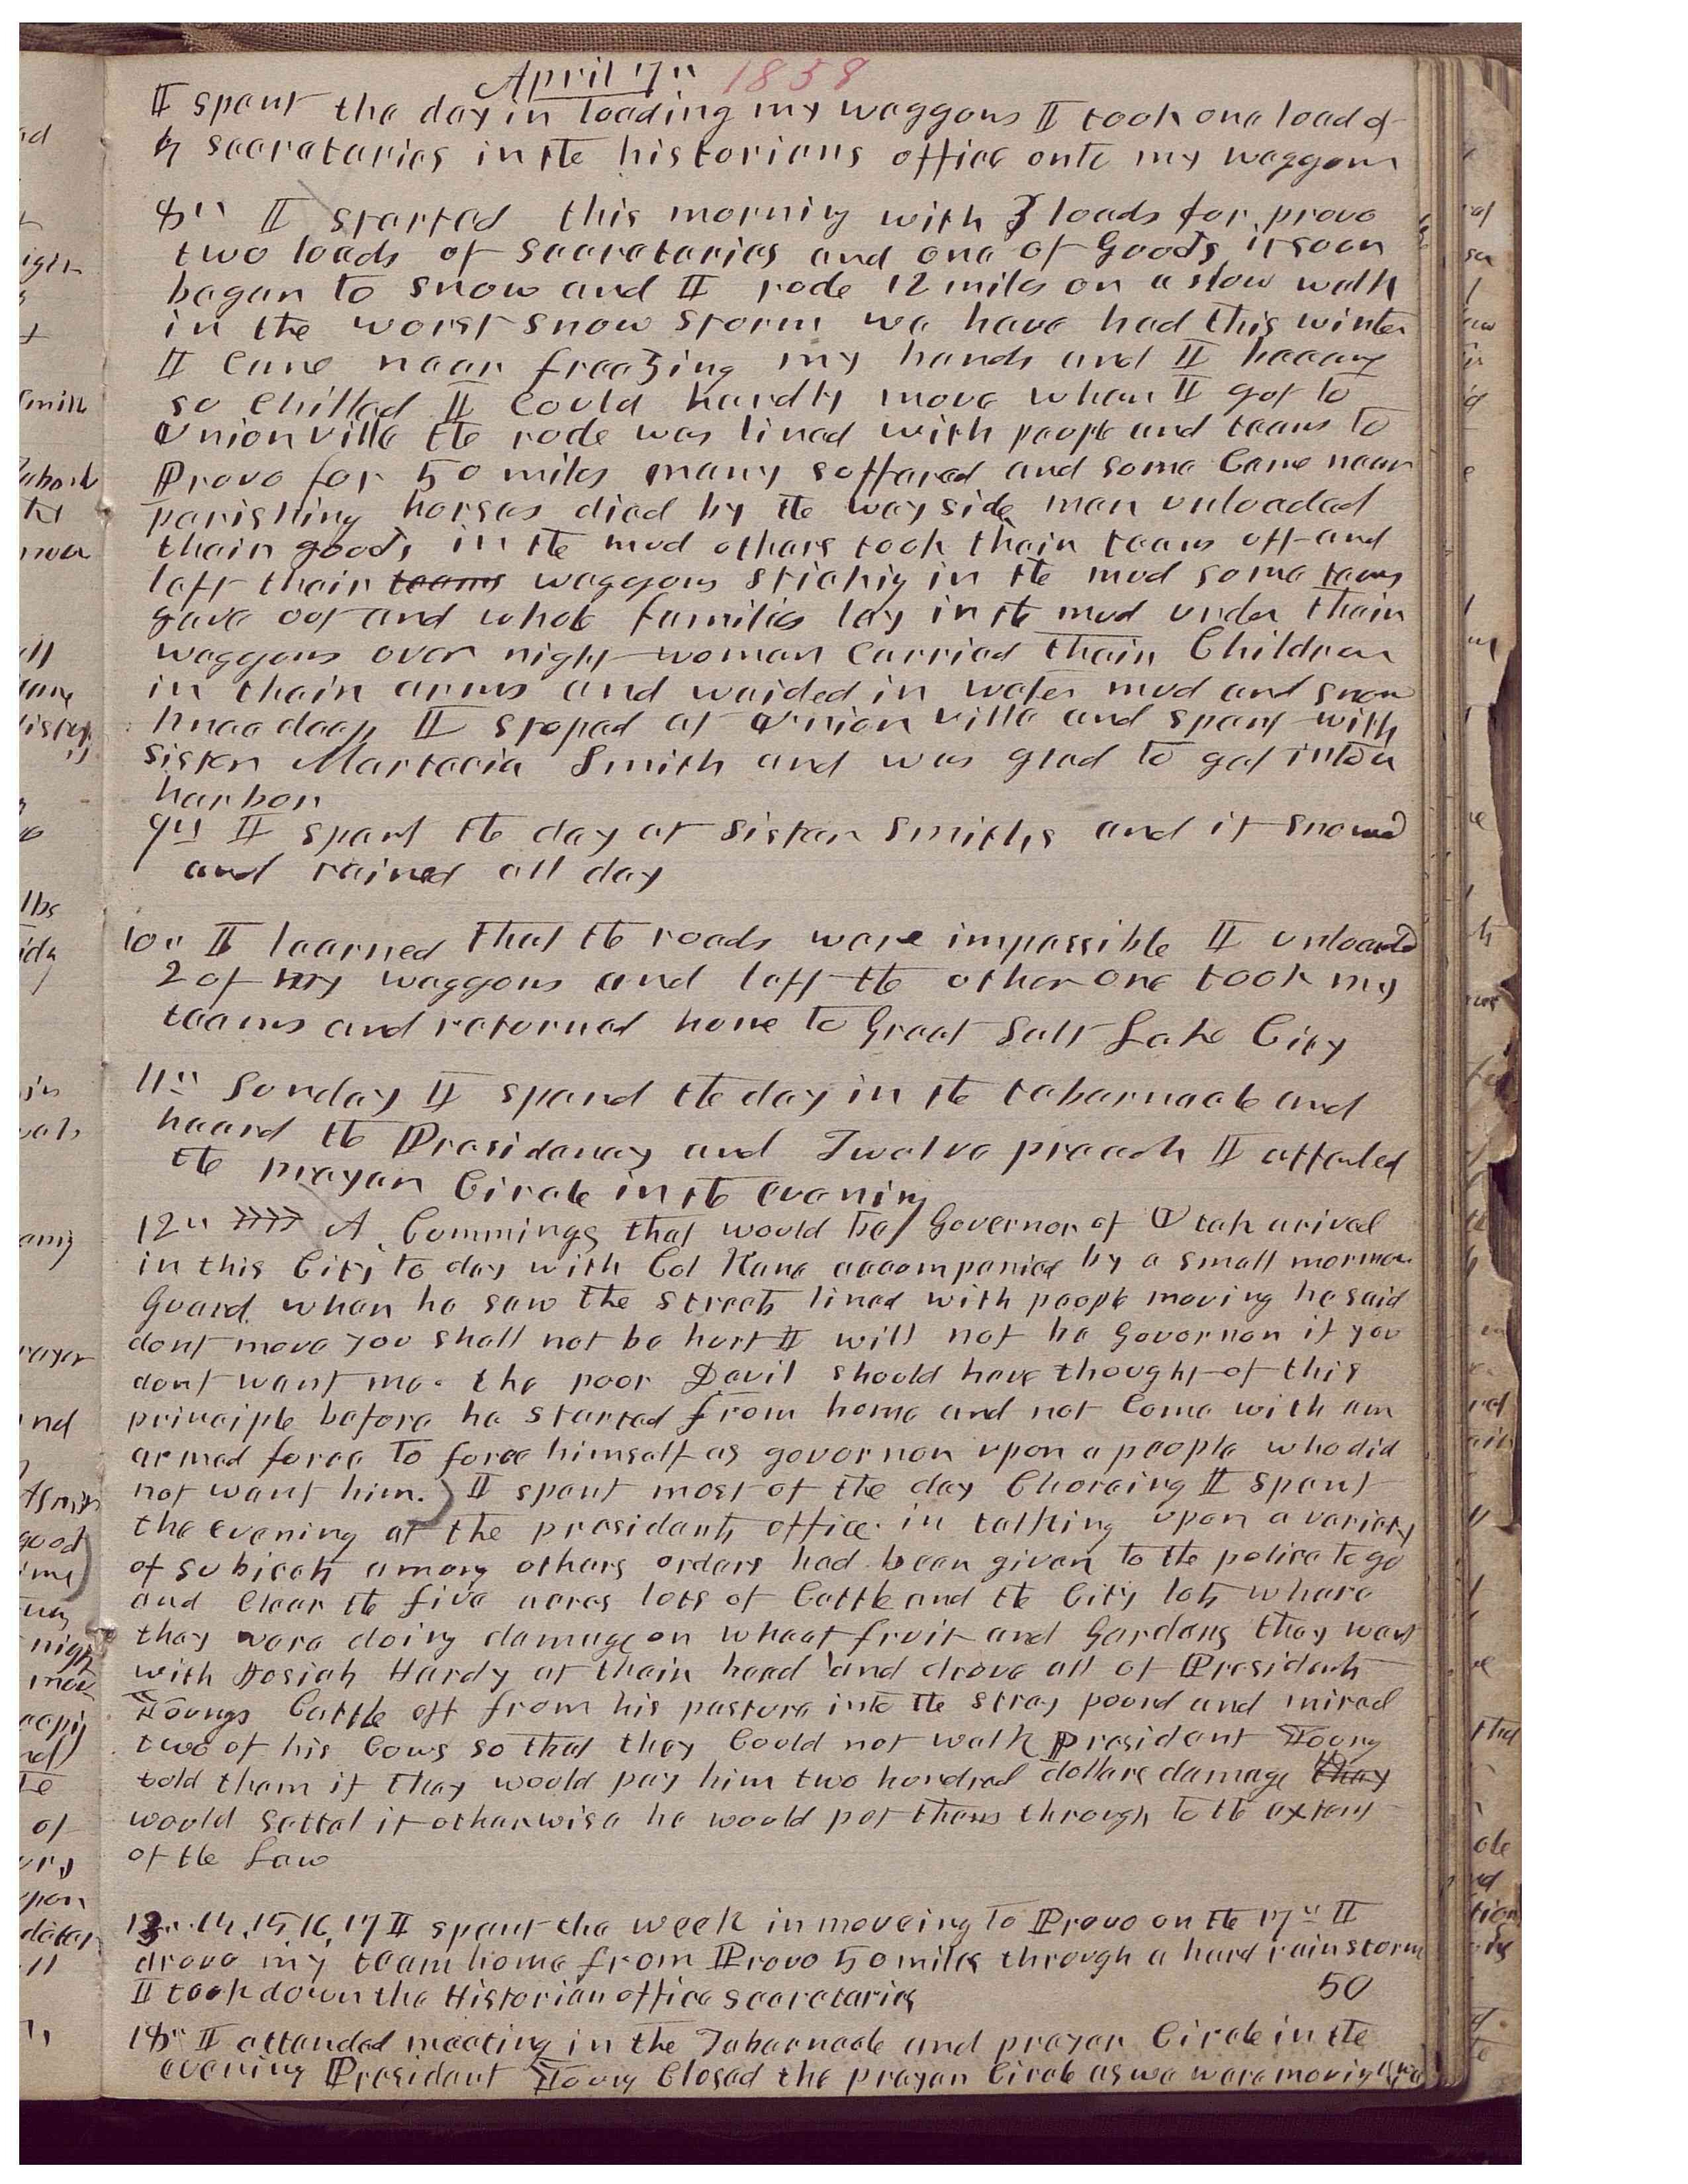 April 7th 1858
I spent the day in loading my waggons I took one load of
secretaries in the historians office onto my waggon
8th I started this morning with 3 loads for provo
two loads of secretaries and one of Goods it soon
began to snow and I rode 12 miles on a slow walk
in the worst snow storm we have had this winter
I Came near freezing my hands and I became
so Chilled I Could hardly move when I got to
Unionville the rode was lined with people and teams to
Provo for 50 miles many suffered and some Came near
perishing horses died by the way side men unloaded
their goods in the mud others took their teams off and
left their teams waggons sticking in the mud some teams
gave out and whole families lay in the mud under their
waggons over night women Carried their Children
in their arms and waided in water mud and snow
knee deep I stoped at Union ville and spent with
sister Smith and was glad to get into a
harbor
9th I spent the day at Sister Smiths and it snowed
and rained all day
10th I learned that the roads were impassible I unloaded
2 of my waggons and left the other one took my
teams and returned home to Great Salt Lake City
11th Sunday I spend the day in the tabernacle and
heard the Presidency and Twelve preach I attended
the prayer Circle in the evening
12th A Cummings that would be Governor of Utah arived
in this City to day with Col Kane accompanied by a small mormon
Guard. when he saw the streets lined with people moving he said
dont move you shall not be hurt I will not be Governor if you
dont want me. the poor Devil should have thought of this
principle before he started from home and not Come with an
armed force to force himself as governor upon a people who did
not want him.) I spent most of the day Choreing I spent
the evening at the presidents office in talking upon a variety
of subjects among others orders had been given to the police to go
and Clear the five acres lots of Cattle and the City lots where
they were doing damage on wheat fruit and Gardens they went
with Josiah Hardy at their head and drove all of Presidents
Youngs Cattle off from his pasture into the stray pound and mired
two of his Cows so that they Could not walk President Young
told them if they would pay him two hundred dollars damage they
would settel it otherwise he would put them through to the extent
of the Law
13th. 14, 15, 16, 17 I spent the week in moveing to Provo on the 17th I
drove my team home from Provo 50 miles through a hard rainstorm
I took down the Historian office secretaries 50
18th I attended meeting in the Tabernacle and prayer Circle in the
evening President Young Closed the prayer Circle as we were moving